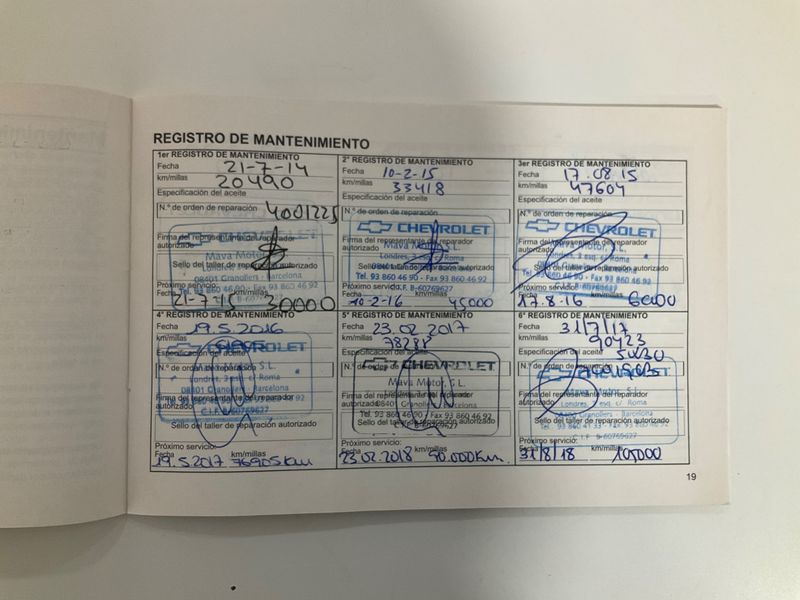 REGISTRO DE MANTENIMIENTO
1er REGISTRO DE MANTENIMIENTO
Fecha 21-7-14
km/millas 20490
Especificación del aceite
N.º de orden de reparación 4001225
CHEVROLET
Firma del representante del reparador
autorizado
Mava Motor
Sello del taller de reparación autorizado
08401 Granollers - Barcelona
Tel. 93 860 46 90 - Fax 93 860 46 92
Próximo servicio:
Fecha km/millas
21-7-15 30000
2º REGISTRO DE MANTENIMIENTO
Fecha 10-2-15
km/millas 33418
Especificación del aceite
N.º de orden de reparación
CHEVROLET
Firma del representante del reparador
autorizado
Mava Motor, S.L.
Londres, 3 esq. c/ Roma
Sello del taller de reparación autorizado
Tel. 93 860 46 90 - Fax 93 860 46 92
C.I.F. B-60769627
Próximo servicio:
Fecha km/millas
10-2-16 45000
3er REGISTRO DE MANTENIMIENTO
Fecha 17.08.15
km/millas 47604
Especificación del aceite
N.º de orden de reparación
CHEVROLET
Firma del representante del reparador
autorizado
Mava Motor, S.L.
Londres, 3 esq. c/ Roma
Sello del taller de reparación autorizado
Tel. 93 860 46 90 - Fax 93 860 46 92
Próximo servicio:
Fecha km/millas
17.8.16
4º REGISTRO DE MANTENIMIENTO
Fecha 19.5.2016
km/millas
Especificación del aceite
CHEVROLET
N.º de orden de reparación
Londres, 3 esq. c/ Roma
08401 Granollers - Barcelona
Firma del representante del reparador
autorizado
Tel. 93 860 46 90 - Fax 93 860 46 92
C.I.F. B-60769627
Sello del taller de reparación autorizado
Próximo servicio:
Fecha km/millas
19.5.2017 76905 Km
5º REGISTRO DE MANTENIMIENTO
Fecha 23.02.2017
km/millas
Especificación del aceite
CHEVROLET
N.º de orden de
Mava Motor, S.L.
Firma del representante del reparador
autorizado
08401 Granollers - Barcelona
Tel. 93 860 46 90 - Fax 93 860 46 92
Sello del taller de reparación autorizado
Próximo servicio:
Fecha km/millas
23.02.2018 90.000Km.
6º REGISTRO DE MANTENIMIENTO
Fecha 31/7/17
km/millas 90423
Especificación del aceite 5W30
CHEVROLET
N.º de orden de reparación
Mava Motor, S.L.
Firma del representante del reparador
autorizado
Londres, 3 esq. c/ Roma
08401 Granollers - Barcelona
Tel. 93 860 41 33 - Fax 93 860 46 92
C.I.F. B-60769627
Sello del taller de reparación autorizado
Próximo servicio:
Fecha km/millas
31/8/18 105000
19